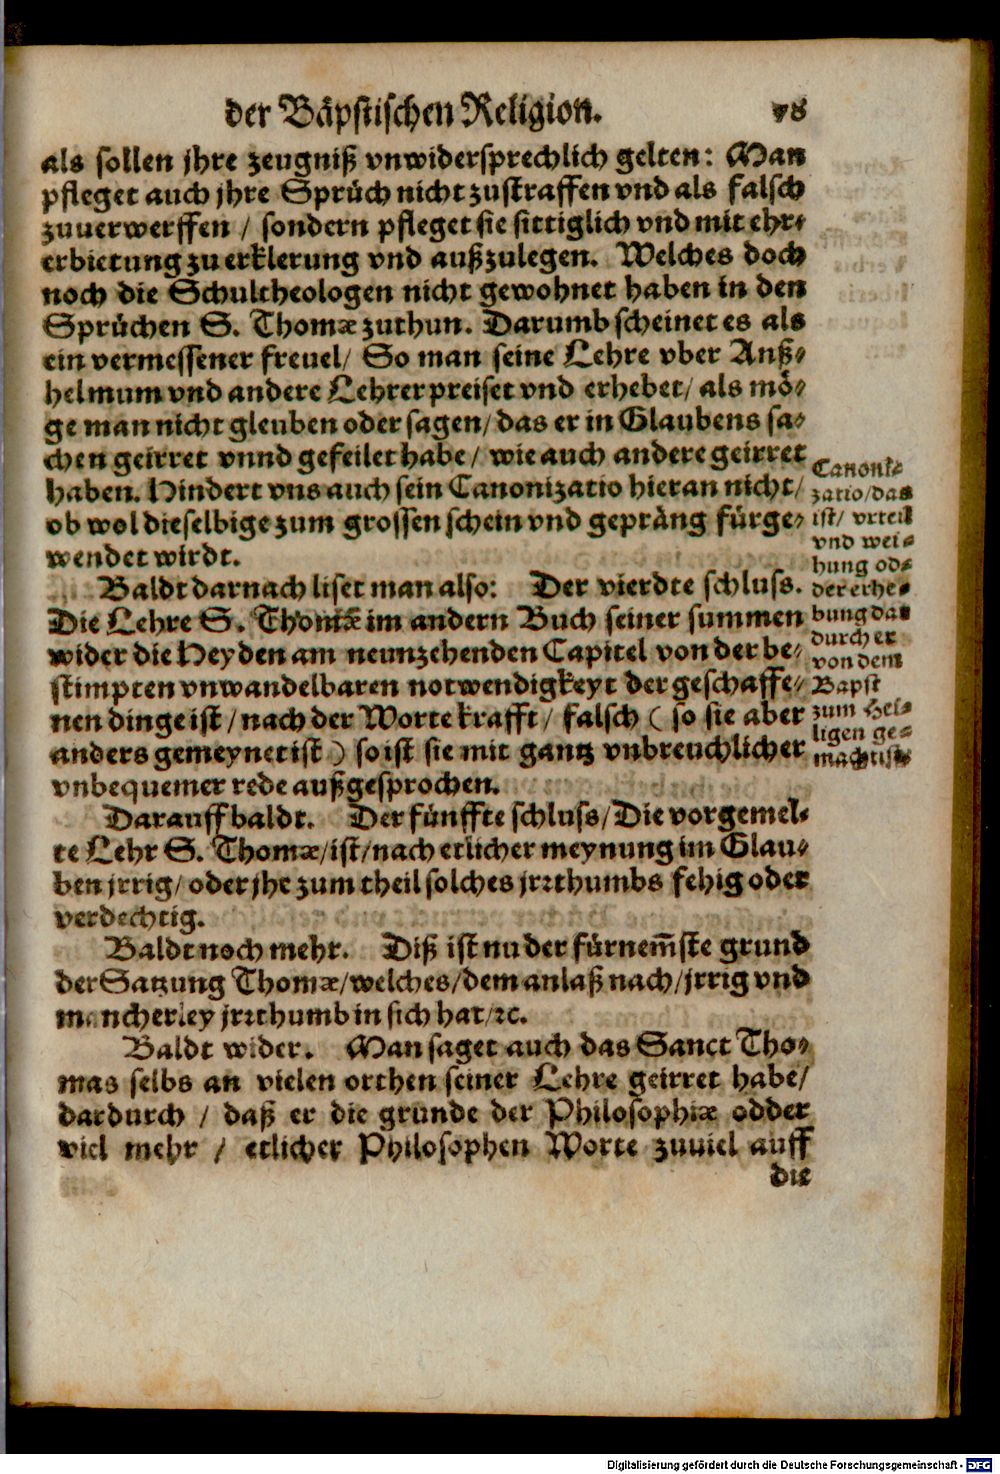 der Bäpstischen Religion. 78
als sollen jhre zeugniß vnwidersprechlich gelten: Man
pfleget auch jhre Sprüch nicht zustraffen vnd als falsch
zuuerwerffen / sondern pfleget sie sittiglich vnd mit ehr-
erbietung zu erklerung vnd außzulegen. Welches doch
noch die Schultheologen nicht gewohnet haben in den
Sprüchen S. Thomæ zuthun. Darumb scheinet es als
ein vermessener freuel/ So man seine Lehre vber Anß-
helmum vnd andere Lehrer preiset vnd erhebet/ als mö-
ge man nicht gleuben oder sagen/ das er in Glaubens sa-
chen geirret vnnd gefeilet habe/ wie auch andere geirret
haben. Hindert vns auch sein Canonizatio hieran nicht/
ob wol dieselbige zum grossen schein vnd gepräng fürge-
wendet wirdt.
Baldt darnach liset man also: Der vierdte schluss.
Die Lehre S. Thomæ im andern Buch seiner summen
wider die Heyden am neunzehenden Capitel von der be-
stimpten vnwandelbaren notwendigkeyt der geschaffe-
nen dinge ist / nach der Worte krafft/ falsch ( so sie aber
anders gemeynet ist ) so ist sie mit gantz vnbreuchlicher
vnbequemer rede außgesprochen.
Canoni-
zatio/das
ist/ vrteil
vnd wei-
hung od-
der erhe-
bung das
durch er
von dem
Bapst
zum Hei-
ligen ge-
macht ist.
Darauff baldt. Der fünffte schluss/Die vorgemel-
te Lehr S. Thomæ/ist/nach etlicher meynung im Glau-
ben jrrig/ oder jhe zum theil solches jrꝛthumbs fehig oder
verdechtig.
Baldt noch mehr. Diß ist nu der fürnem̃ste grund
der Satzung Thomæ/welches/dem anlaß nach/jrrig vnd
mancherley jrꝛthumb in sich hat/ꝛc.
Baldt wider. Man saget auch das Sanct Tho-
mas selbs an vielen orthen seiner Lehre geirret habe/
dardurch / daß er die gründe der Philosophiæ odder
viel mehr / etlicher Philosophen Worte zuuiel auff
die
Digitalisierung gefördert durch die Deutsche Forschungsgemeinschaft - DFG